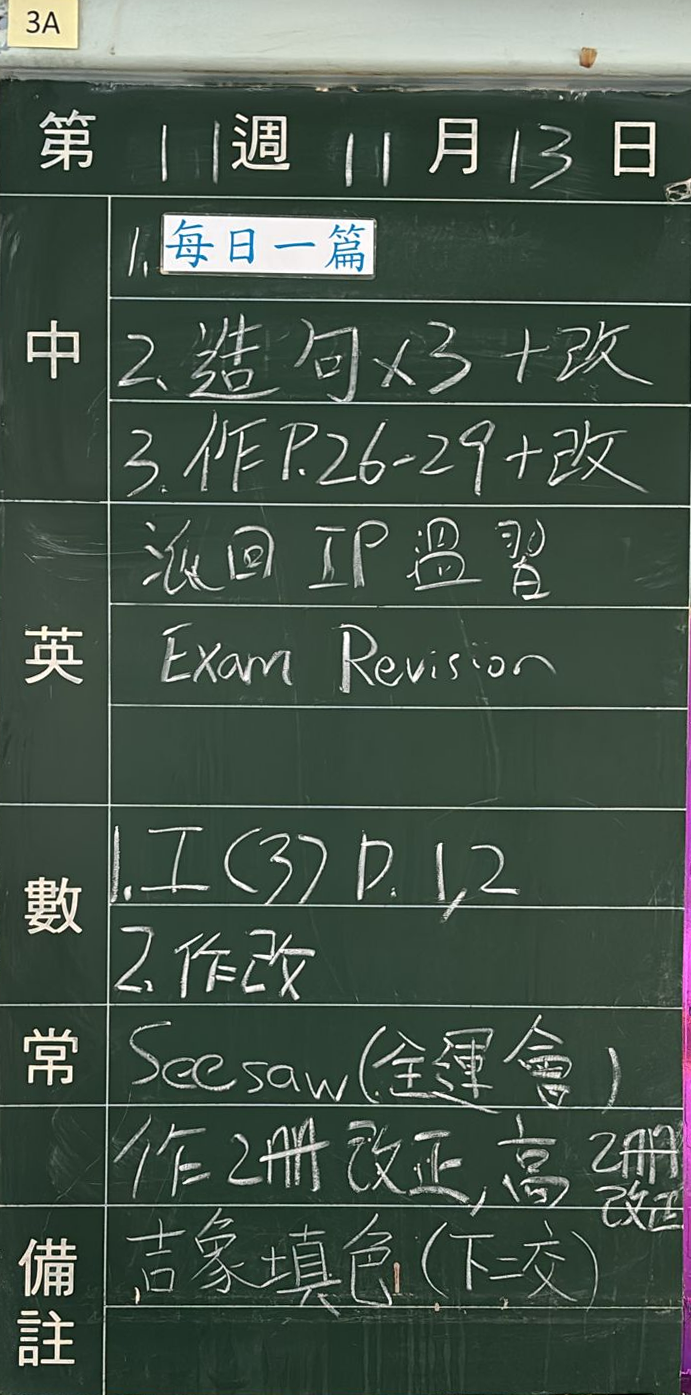 3A
第 11 週 11 月 13 日
中
1. 每日一篇
2. 造句x3+改
3. 作P.26-29+改
英
派回 IP 溫習
Exam Revision
數
1. 工(3) P. 1,2
2. 作改
常
Seesaw(全運會)
作2冊改正, 高2冊改正
備註
吉象填色(下二交)